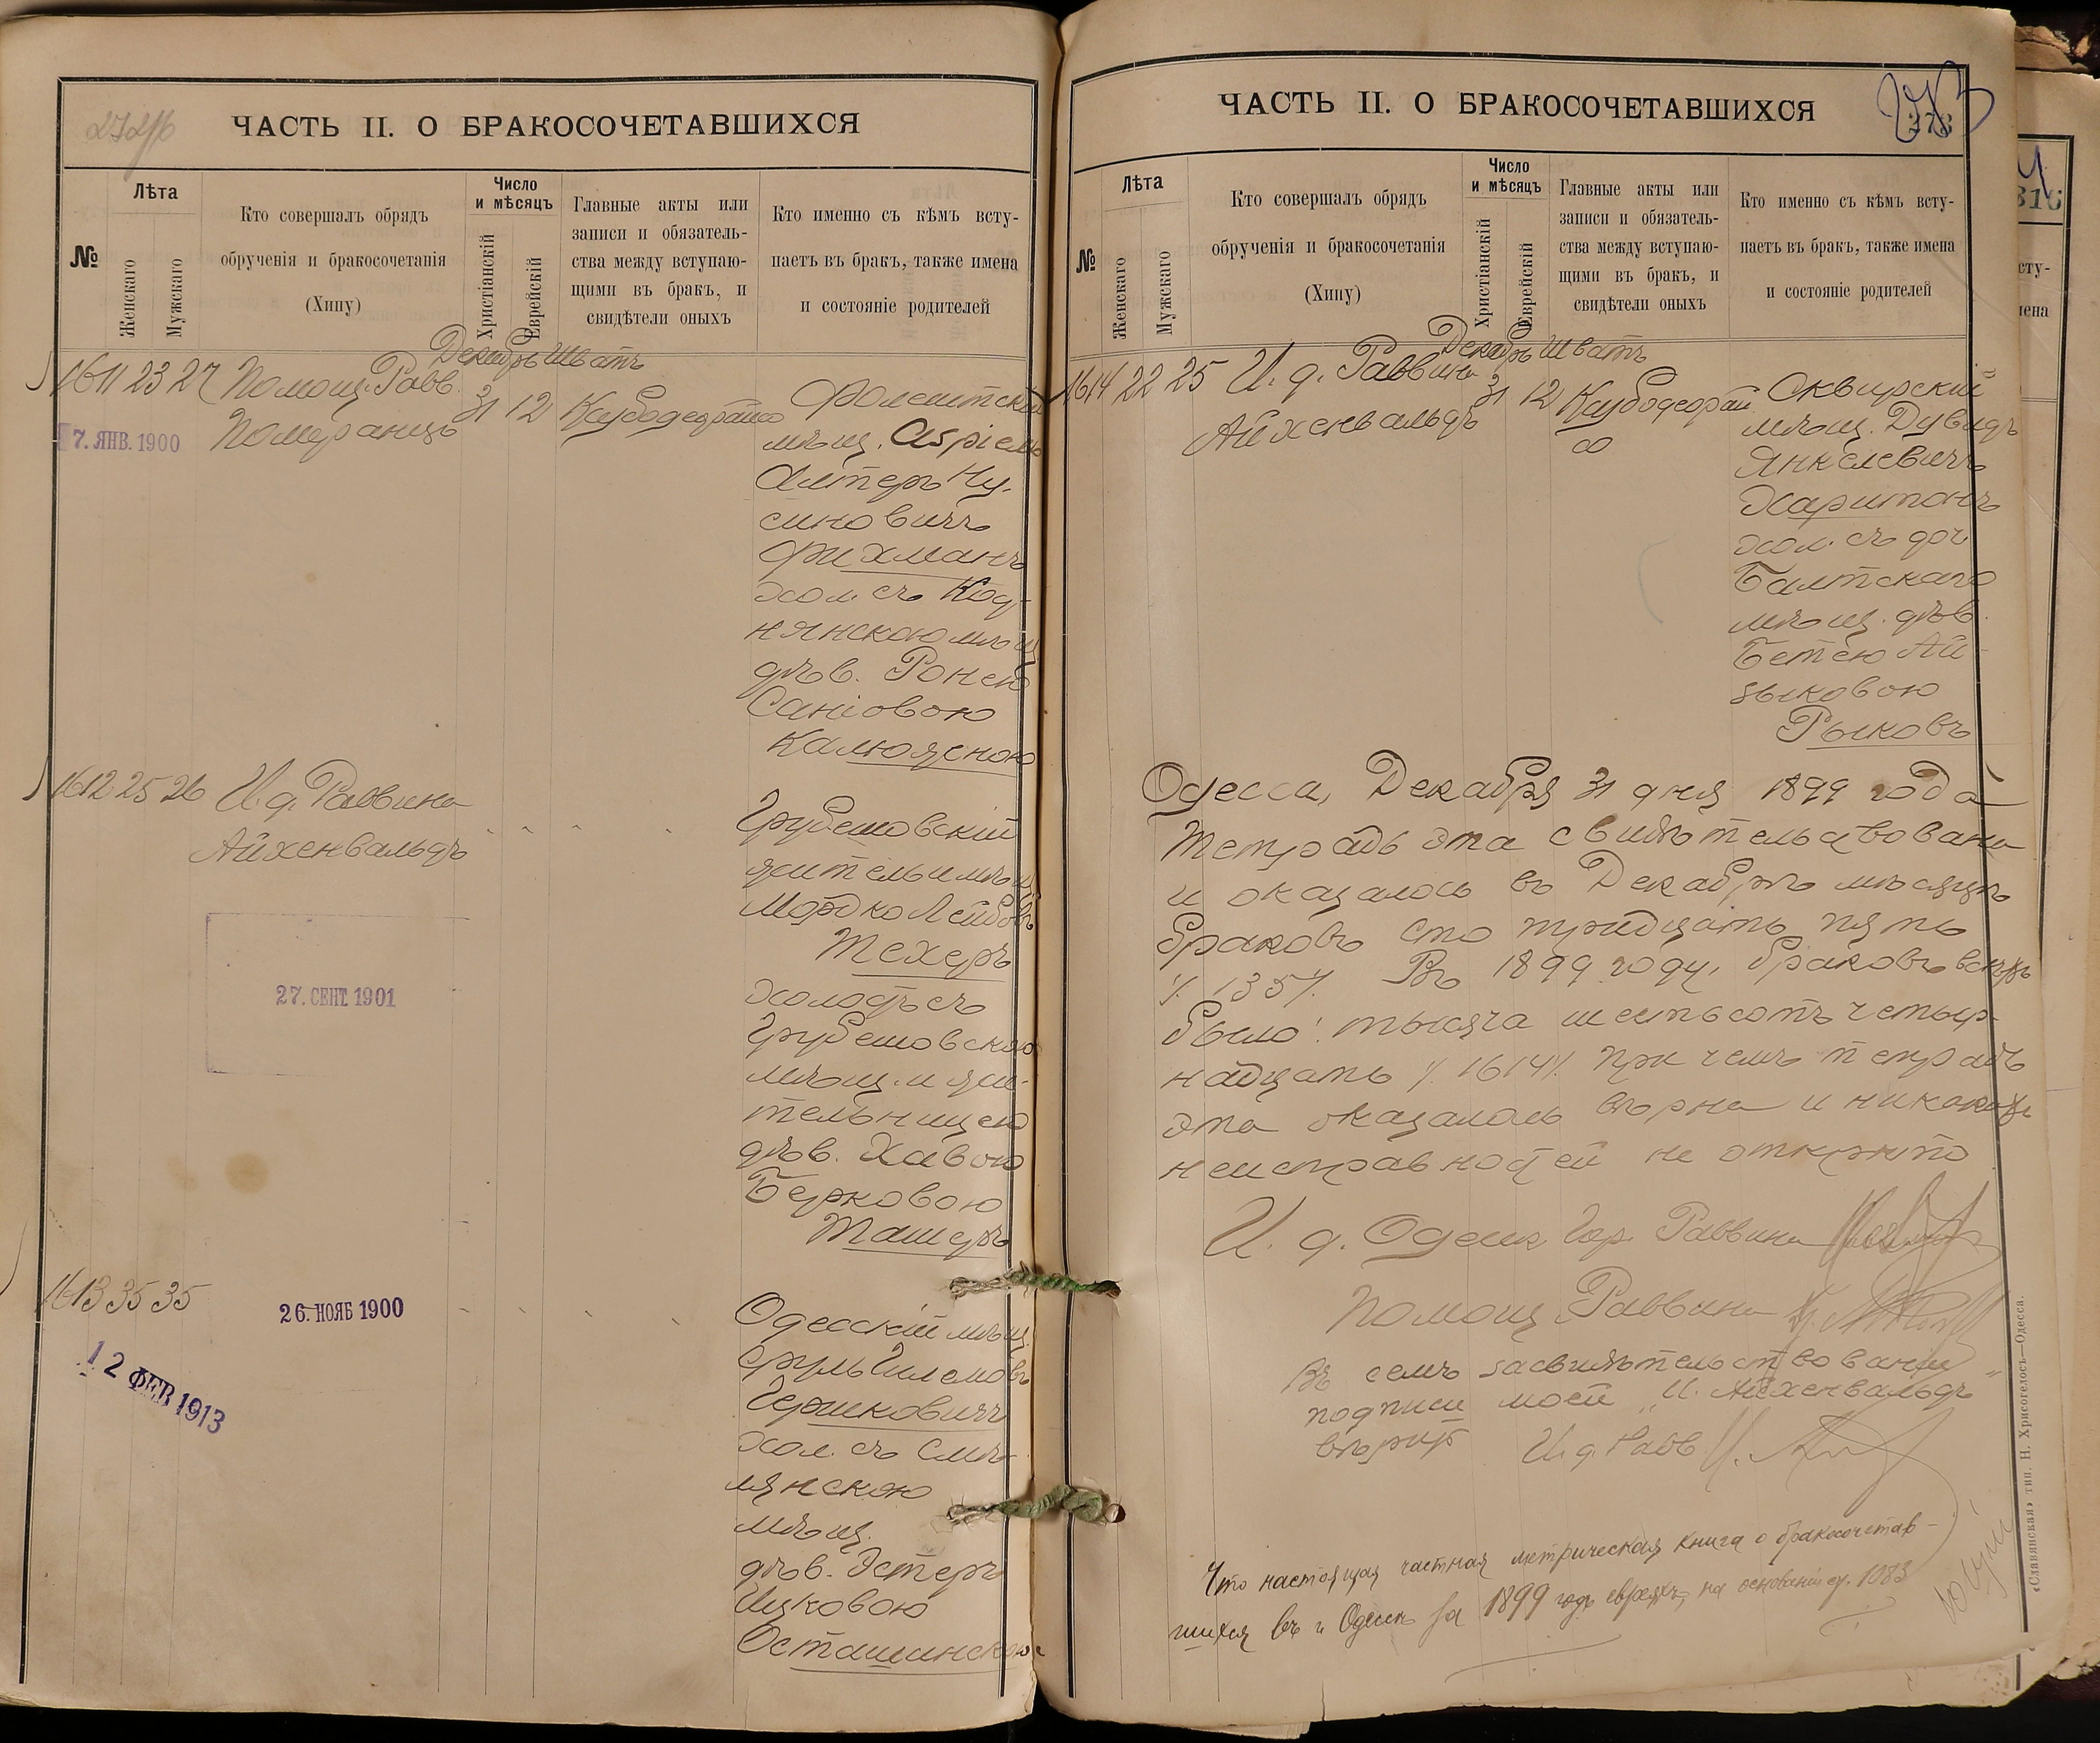 272об
ЧАСТЬ II. О БРАКОСОЧЕТАВШИХСЯ
№
Лѣта
Женскаго
Мужскаго
Кто совершалъ обрядъ
обрученія и бракосочетанія
(Хипу)
Число
и мѣсяцъ
Христіанскій
Еврейскій
Главные акты или
записи и обязатель-
ства между вступаю-
щими въ бракъ, и
свидѣтели оныхъ
Кто именно съ кѣмъ всту-
паетъ въ бракъ, также имена
и состояніе родителей
Декабрь Шватъ
1611 23 27 Помощ. Равв.
Померанцъ
31 12
7. ЯНВ. 1900
мѣщ. Азріель
Алтеръ Ну-
синовичъ
Фихманъ
хол. съ Код-
нянскою мѣщ
дѣв. Ронею
Саніовою
Калюжною
1612 25 26 И. д. Раввина
Айхенвальдъ
27. СЕНТ. 1901
Грубешовскій
житель и мѣщ
Мордко Лейбовъ
Техеръ
холостъ съ
Грубешовскою
мѣщ. и жи-
тельницею
дѣв. Хавою
Берковою
Ташеръ
1613 35 35
26. НОЯБ 1900
12 ФЕВ 1913
Одесскій мѣщ
Сруль
Гершковичъ
хол. съ Смѣ-
лянскою
мѣщ.
дѣв. Эстеръ
Ицковою
Осташинскою
ЧАСТЬ II. О БРАКОСОЧЕТАВШИХСЯ
273
273
№
Лѣта
Женскаго
Мужскаго
Кто совершалъ обрядъ
обрученія и бракосочетанія
(Хипу)
Число
и мѣсяцъ
Христіанскій
Еврейскій
Главные акты или
записи и обязатель-
ства между вступаю-
щими въ бракъ, и
свидѣтели оныхъ
Кто именно съ кѣмъ всту-
паетъ въ бракъ, также имена
и состояніе родителей
Декабрь Шватъ
1614 22 25 И. д. Раввина
Айхенвальдъ
31 12
Сквирскій
мѣщ. Дувидъ
Янкелевичъ
Харитонъ
хол. съ доч
Балтскаго
мѣщ. дѣв.
Бетею Ай-
зыковою
Рыковъ
Одесса, Декабря 31 дня 1899 года
Тетрадь эта свидѣтельствована
и оказалось въ Декабрѣ мѣсяцѣ
браковъ сто тридцать пять
/. 135/. Въ 1899 году, браковъ всѣхъ
было: тысяча шестьсотъ четыр-
надцать /. 1614/. при чемъ тетрадь
эта оказалась вѣрна и никакихъ
неисправностей не открыто.
И. д. Одесск Гор. Раввина
Помощ Раввина
Въ семъ засвидѣтельствованіи
подписи моей „И. Айхенвальдъ"
вѣрую И. д. Равв
Что настоящая частная метрическая книга о бракосочетав-
шихся въ г. Одессѣ за 1899 годъ евреяхъ, на основаніи ст. 1083
«Славянская» тип. Н. Хрисогелосъ—Одесса.
316
сту-
мена